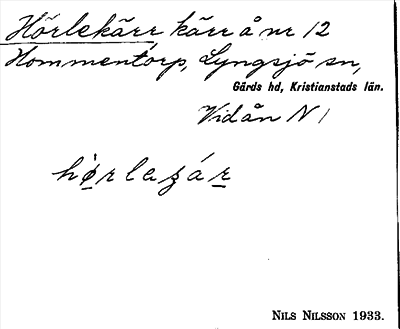 Hörlekärr kärr å nr 12
Hommentorp, Lyngsjö sn,
Gärds hd, Kristianstads län.
Vidån N 1
NILS NILSSON 1933.